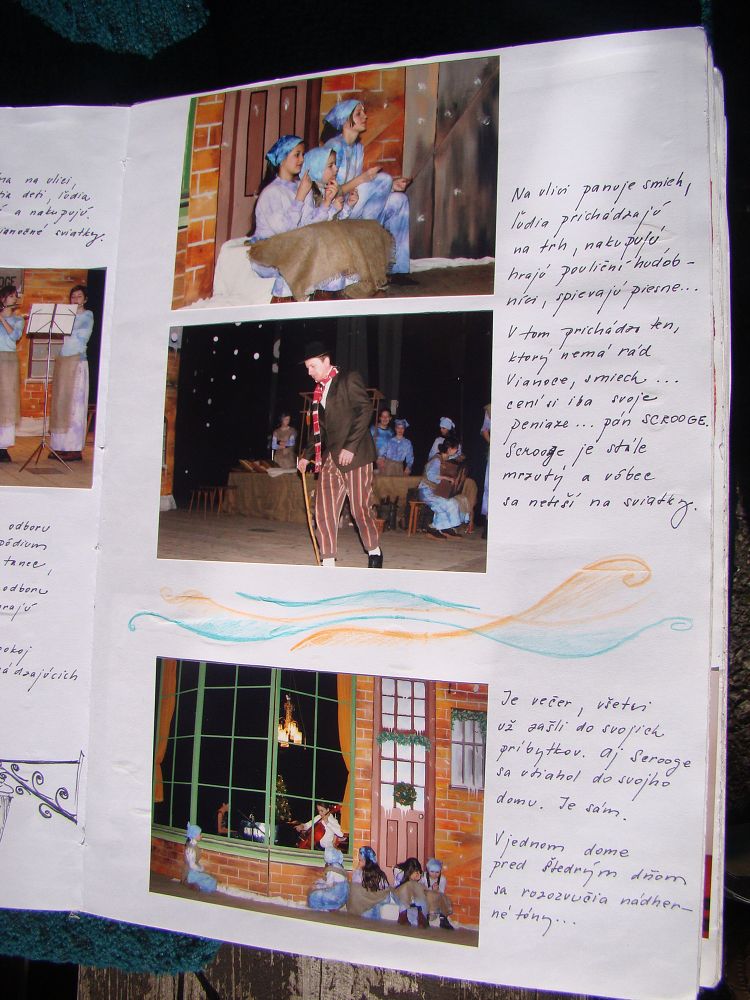 na ulici,
deti, ľudia
a nakupujú.
vianočné sviatky.
odboru
pódium
tanec,
odboru
hrajú
Na ulici panuje smiech,
ľudia prichádzajú
na trh, nakupujú
hrajú pouliční hudob-
níci, spievajú piesne...
V tom prichádza ten,
ktorý nemá rád
Vianoce, smiech ...
cení si iba svoje
peniaze... pán SCROOGE.
Scrooge je stále
mrzutý a vôbec
sa neteší na sviatky.
Je večer, všetci
už zašli do svojich
príbytkov. Aj Scrooge
sa utiahol do svojho
domu. Je sám.
V jednom dome
pred Štedrým dňom
sa rozozvučia nádher-
né tóny...